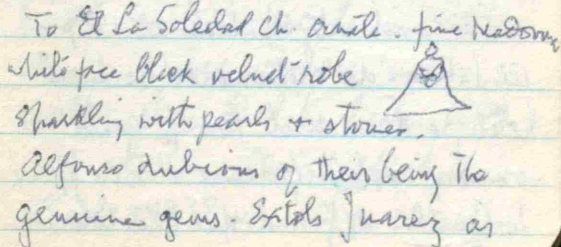 To El La Soledad Ch. ornate. fine Madonna
white face black velvet robe
sparkling with pearls + stones.
Alfonso dubious of their being the
genuine gems. Extols Juarez as